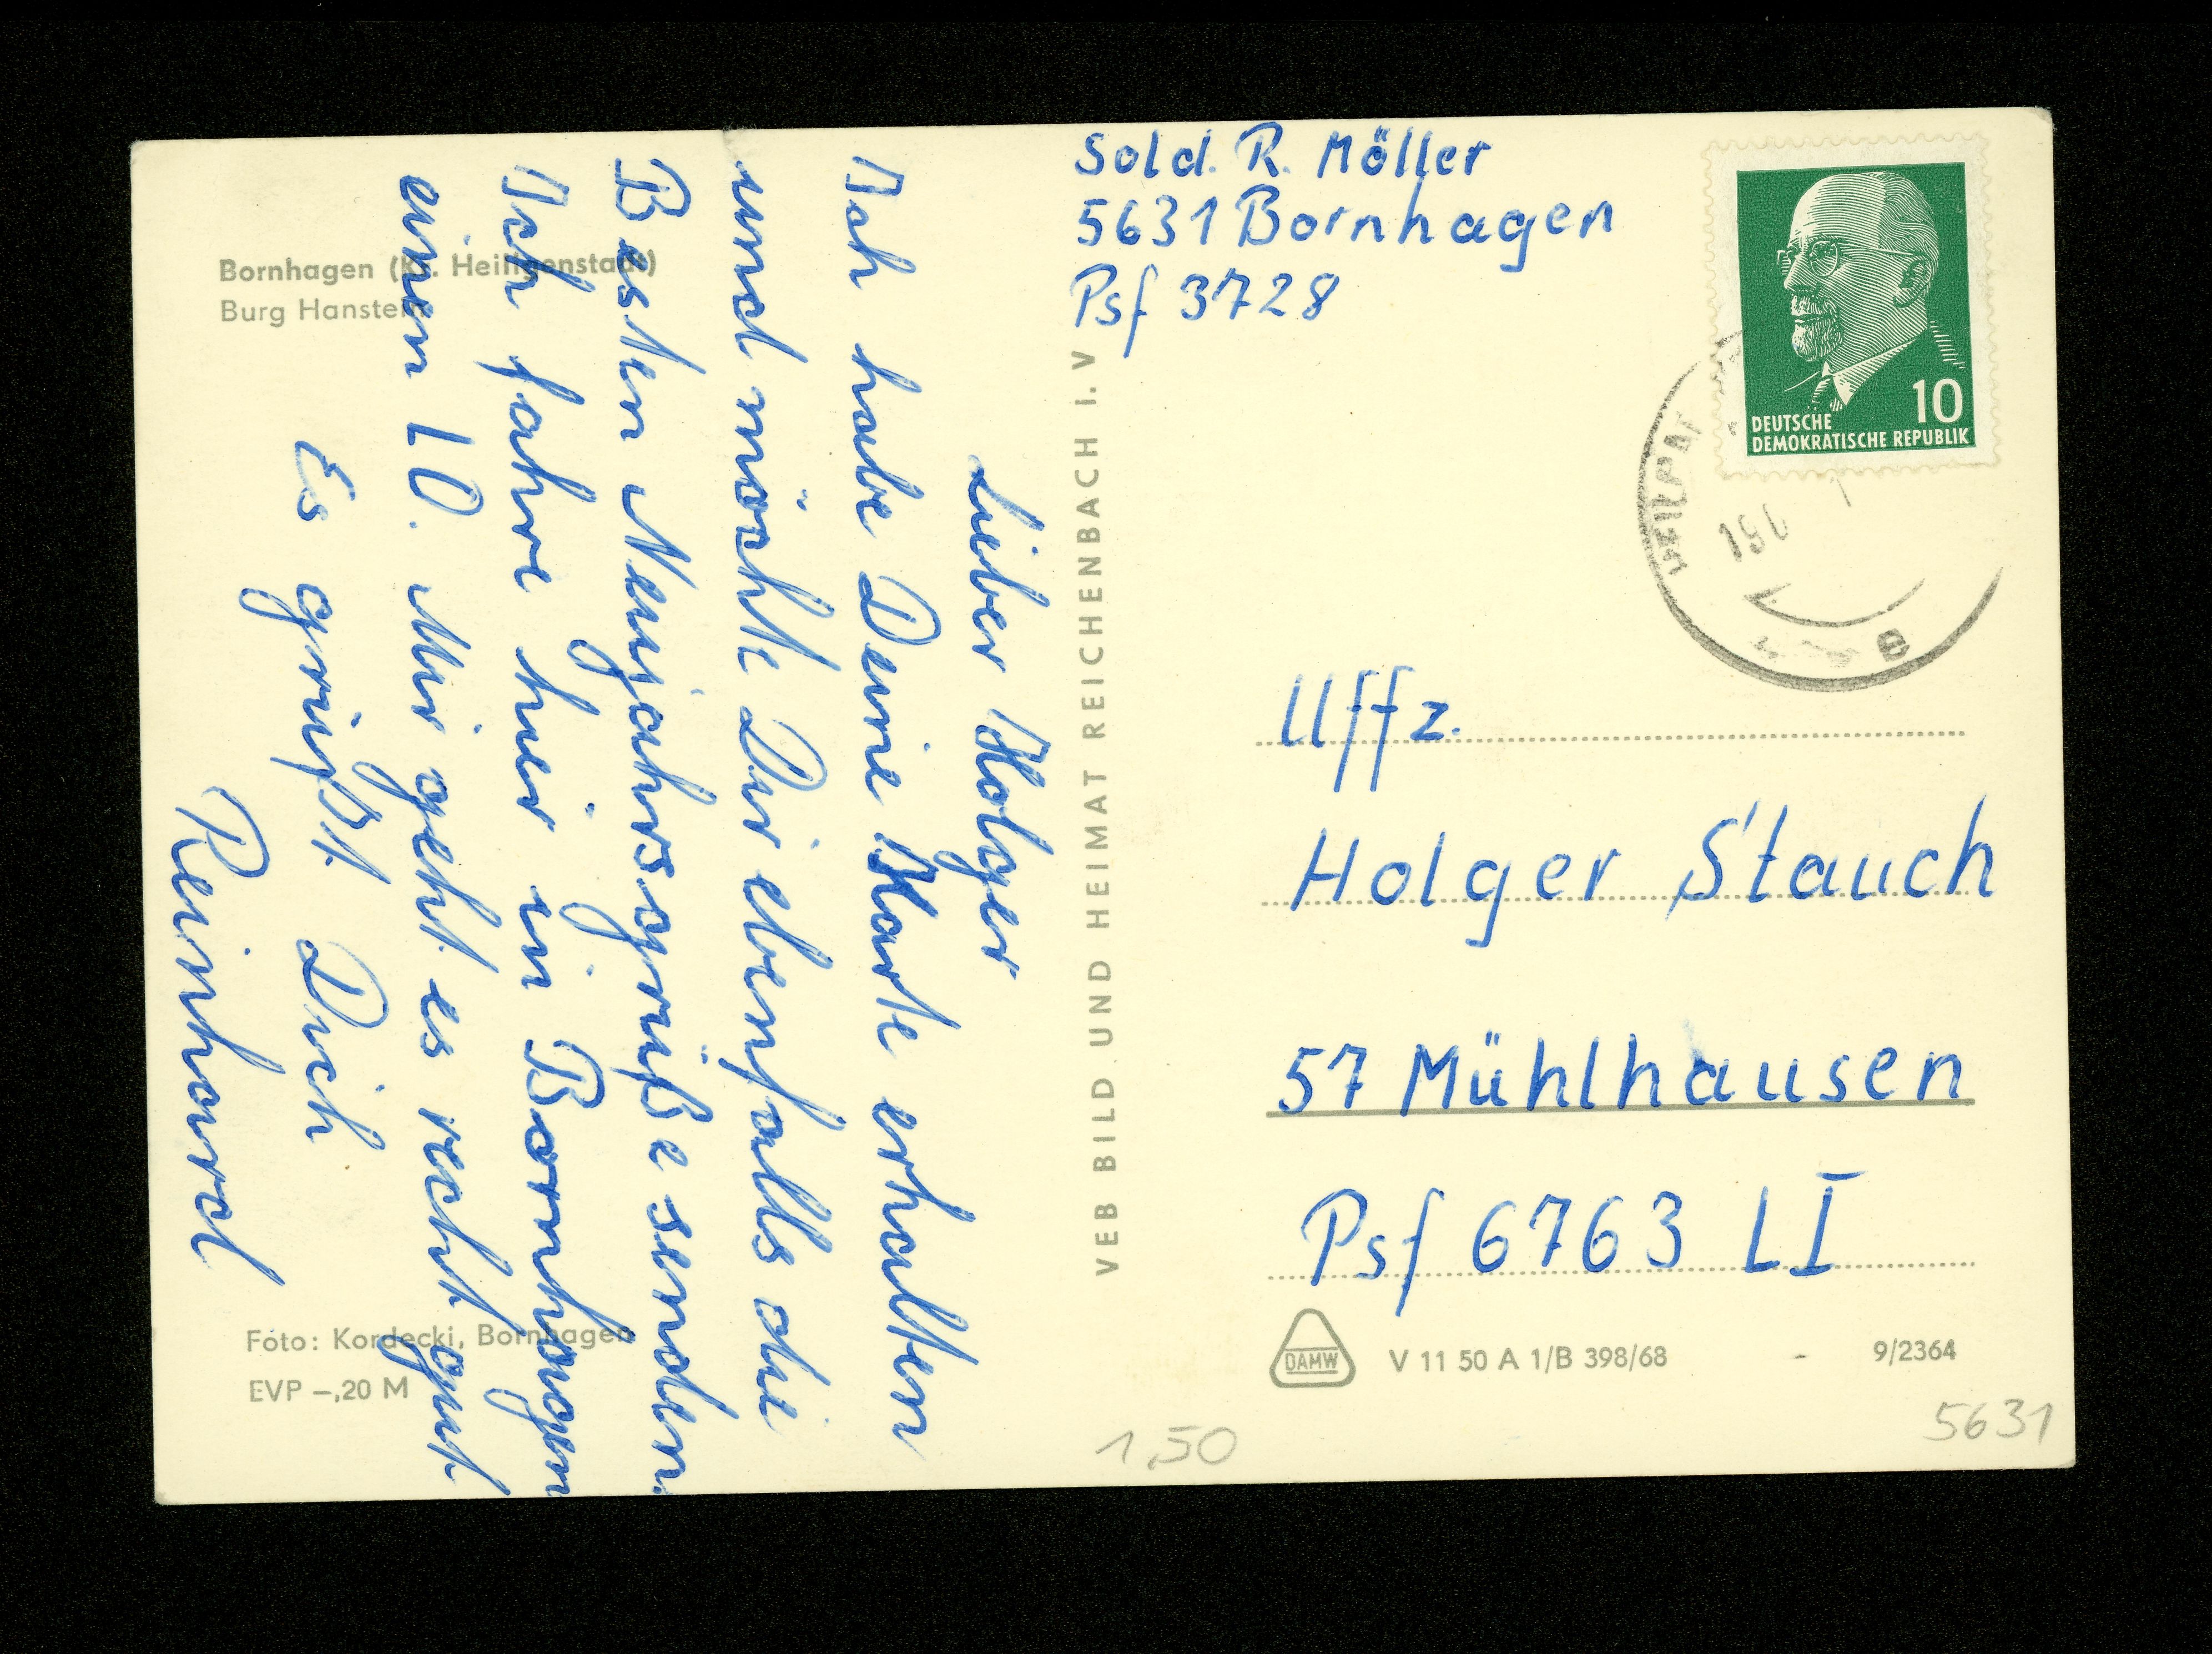 Bornhagen (Kr. Heiligenstadt)
Burg Hanstein
Lieber Holger
Ich habe Deine Karte erhalten
und möchte Dir ebenfalls die
Besten Neujahrsgrüße senden.
Ich fahre hier in Bornhagen
einen LO. Mir geht es recht gut
Es grüßt Dich
Reinhard
Foto: Kordecki, Bornhagen
EVP –,20 M
VEB BILD UND HEIMAT REICHENBACH I. V
Sold. R. Möller
5631 Bornhagen
Psf 3728
10
DEUTSCHE
DEMOKRATISCHE REPUBLIK
Uffz.
Holger Stauch
57 Mühlhausen
Psf 6763 LI
DAMW V 11 50 A 1/B 398/68 - 9/2364
1,50
5631